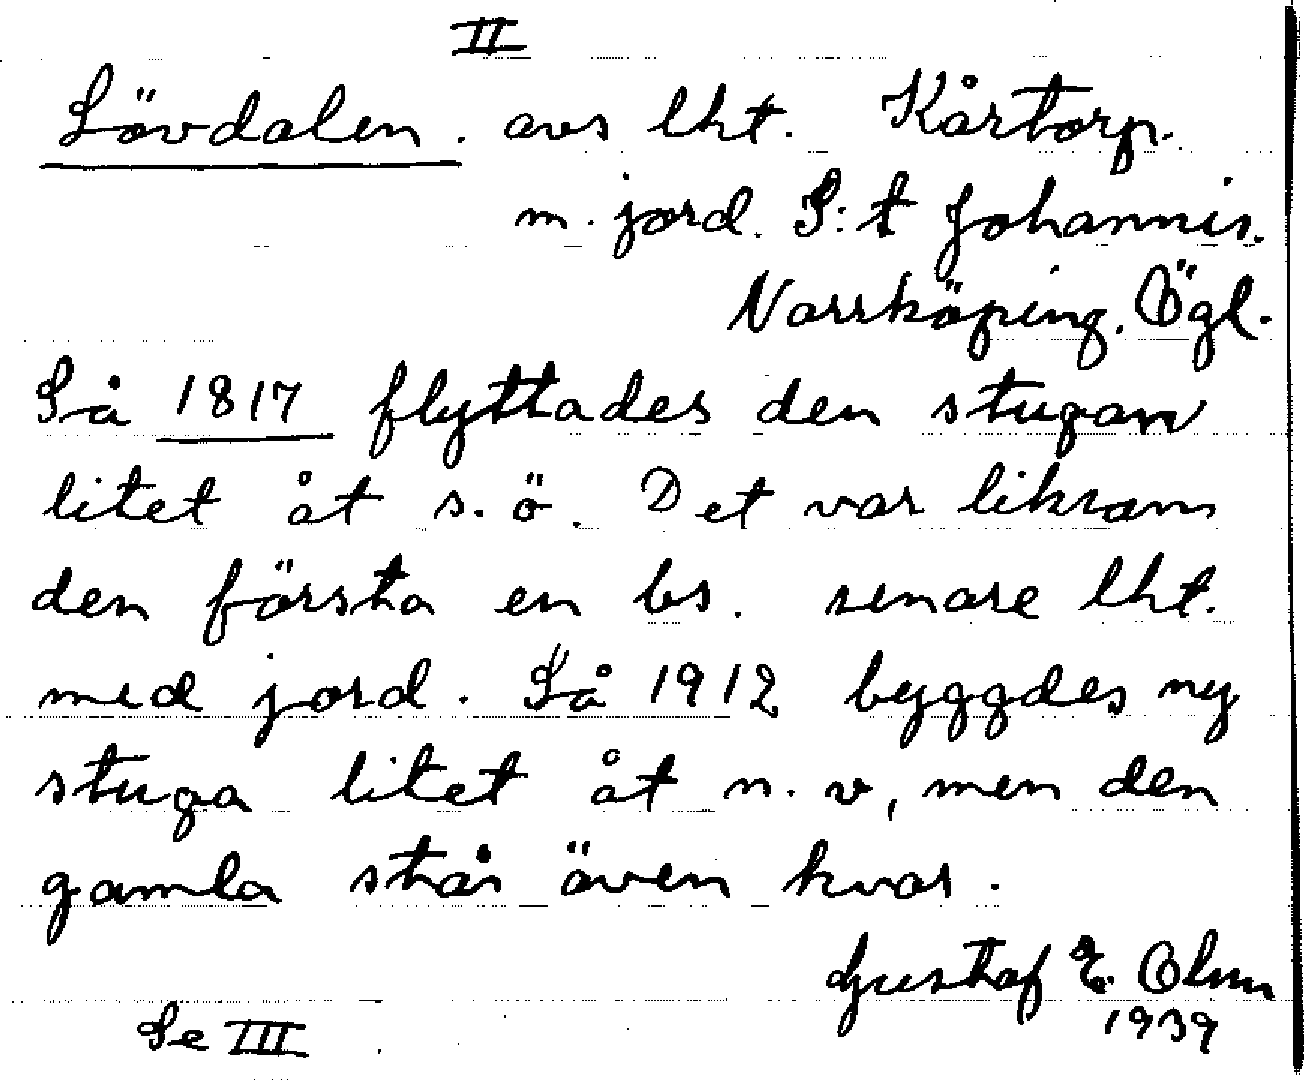 II
Lövdalen. avs lht. Kårtorp.
m. jord. S:t Johannis.
Norrköping. Ögl.
Så 1817 flyttades den stugan
litet åt s.ö. Det var liksom
den första en bs. senare lht.
med jord. Så 1912 byggdes ny
stuga litet åt n.v, men den
gamla står även kvar.
Gustaf E. Olson
1939
Se III